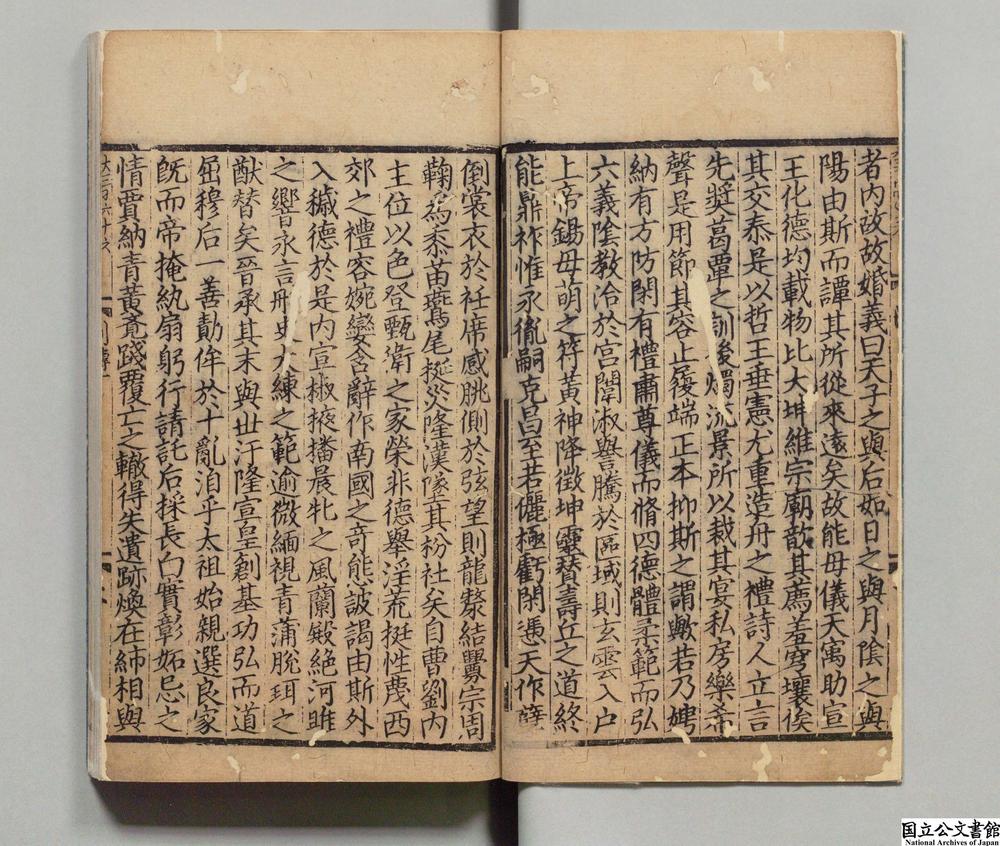 者内政故婚義曰天子之與后如日之與月陰之與
陽由斯而譚其所從來遠矣故能母儀天寓助宣
王化德均載物比大坤維宗廟歆其薦羞穹壤俟
其交泰是以哲王垂憲尤重造舟之禮詩人立言
先奬葛覃之訓後燭流景所以裁其宴私房樂希
聲是用節其容止履端正本抑斯之謂歟若乃娉
納有方防閑有禮肅尊儀而脩四德體柔範而弘
六義陰教洽於宮闈淑譽騰於區域則玄雲入户
上帝錫母萌之符黄神降徵坤靈賛壽丘之道終
能鼎祚惟永胤嗣克昌至若儷極虧閑憑天作孽
倒裳衣於衽席感朓側於弦望則龍漦結釁宗周
鞠為黍苗鷰尾挻災隆漢墜其枌社矣自曹劉内
主位以色登甄衛之家榮非德舉淫荒挺性蔑西
郊之禮容婉孌含辭作南國之奇態詖謁由斯外
入穢德於是内宣椒掖播晨牝之風蘭殿絶河雎
之響永言彤史大練之範逾微緬視青蒲脱珥之
猷替矣晉承其末與世汙隆宣皇創基功弘而道
屈穆后一善勣侔於十亂洎乎太祖始親選良家
既而帝掩紈扇躬行請託后採長白實彰妬忌之
情賈納青黄竟踐覆亡之轍得失遺跡煥在綈緗與
國立公文書館
National Archives of Japan